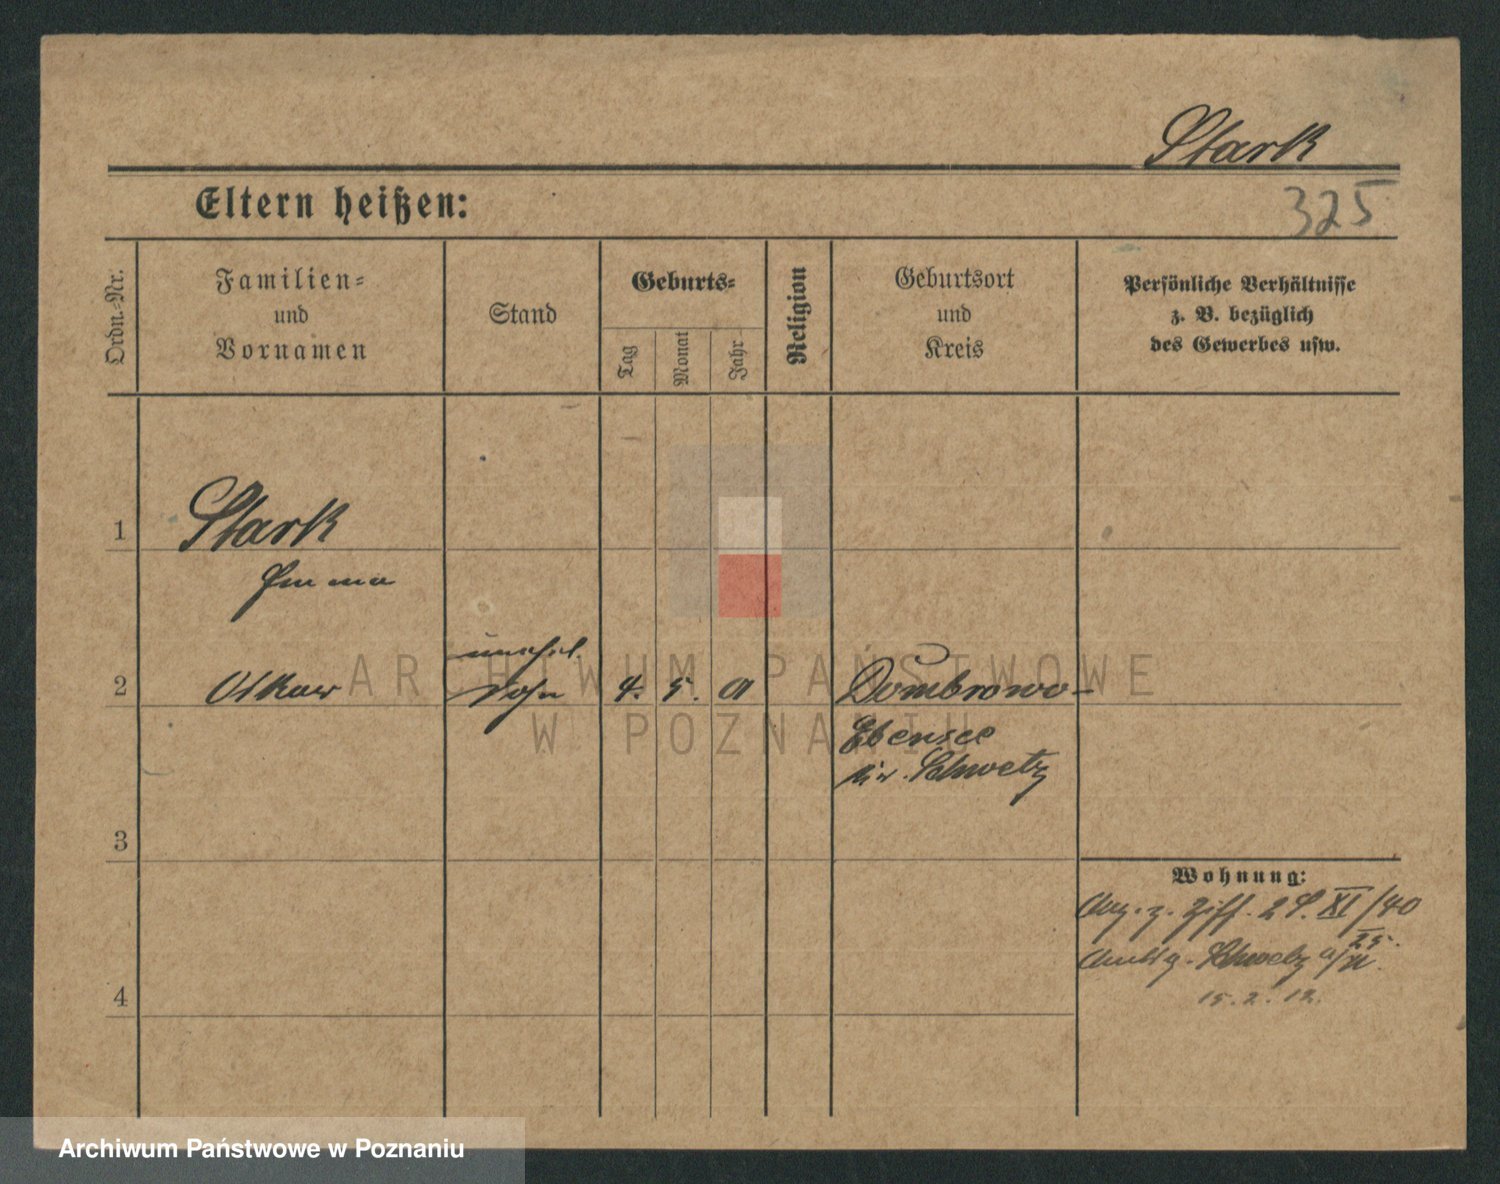 Stark
325
Eltern heißen:
Ordn.-Nr.
Familien-
und
Vornamen
Stand
Geburts-
Tag
Monat
Jahr
Religion
Geburtsort
und
Kreis
Persönliche Verhältnisse
z. B. bezüglich
des Gewerbes usw.
1
Stark
Emma
2
unehel.
Sohn
4. 5. 01
Dombrowo-
Ebensee
Kr. Schwetz
3
4
Wohnung:
Anz. z. Ziff. XI/40
Schwetz a/W.
15.2.12.
ARCHIWUM PAŃSTWOWE
W POZNANIU
Archiwum Państwowe w Poznaniu